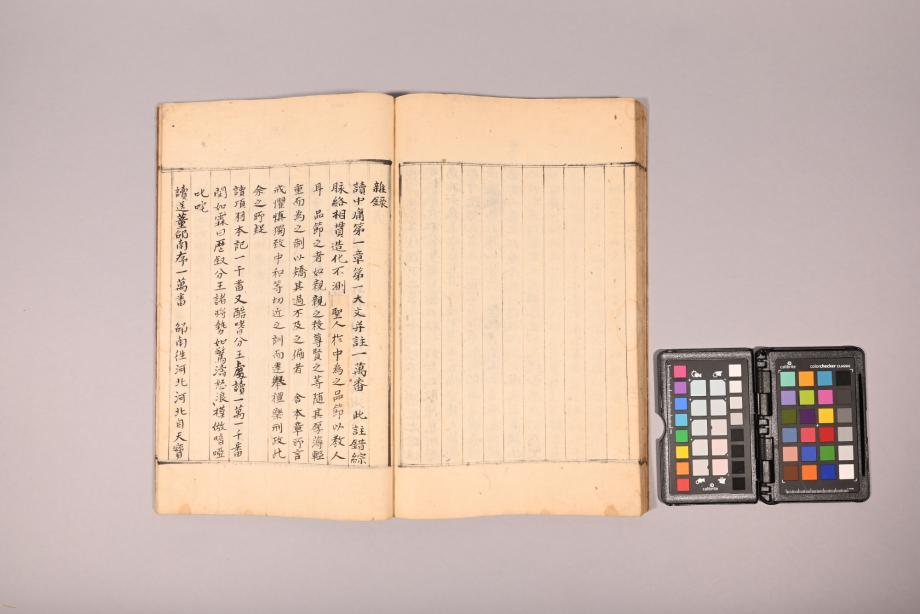 雜錄
讀中庸第一章第一大文并註一萬番 此註錯綜
脉絡相貫造化不測 聖人於中為之品節以教人
耳 品節之者如親親之殺尊賢之等隨其厚薄輕
重而為之制以矯其過不及之偏者 舍本章所言
戒懼愼獨致中和等切近之訓而遠擧禮樂刑政此
余之所疑
讀項羽本記一千番又酷嗜分王處讀一萬一千番
問如霖曰歷敍分王諸將勢如驚濤怒浪模倣喑啞
叱咤
讀送董邵南序一萬番 邵南徃河北河北自天寶
calibrite
colorchecker CLASSIC
calibrite